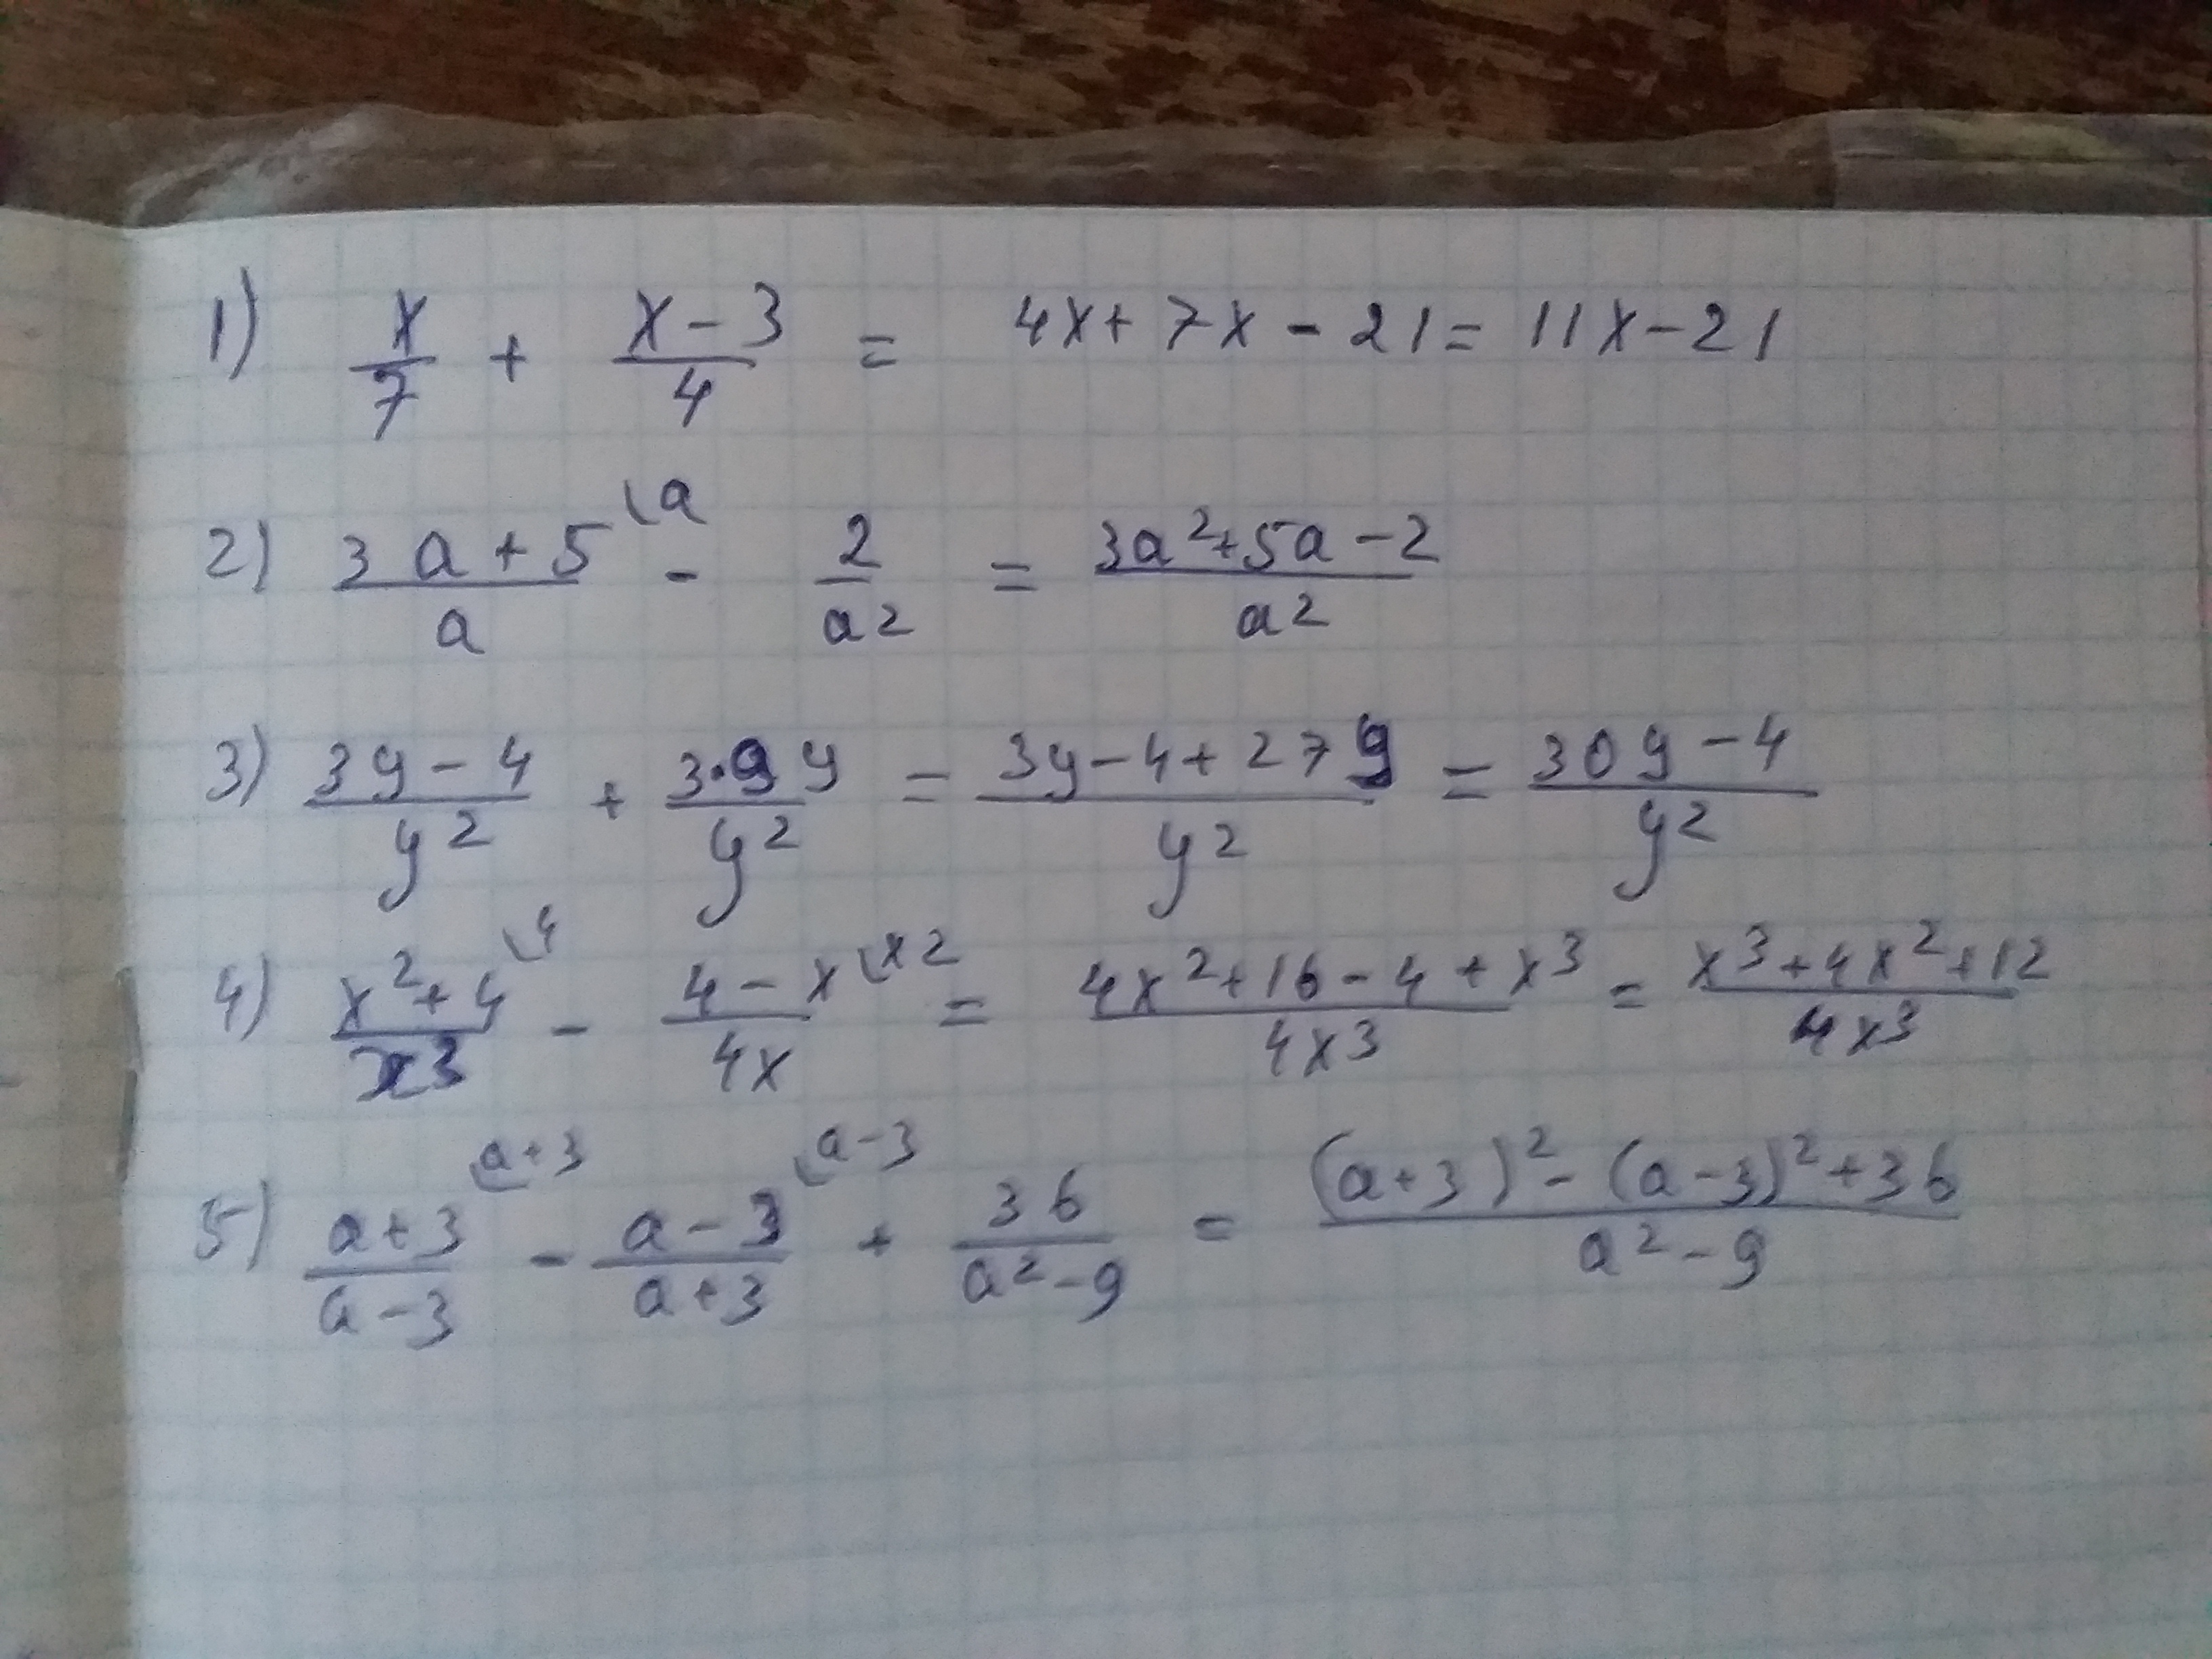 1) x/7 + (x-3)/4 = 4x + 7x - 21 = 11x - 21
2) (3a+5)/a \a - 2/a² = (3a²+5a-2)/a²
3) (3y-4)/y² + (3·9y)/y² = (3y-4+27y)/y² = (30y-4)/y²
4) (x²+4)/x³ \4 - (4-x)/4x \x² = (4x²+16-4+x³)/4x³ = (x³+4x²+12)/4x³
5) (a+3)/(a-3) \a+3 - (a-3)/(a+3) \a-3 + 36/(a²-9) = ((a+3)²-(a-3)²+36)/(a²-9)